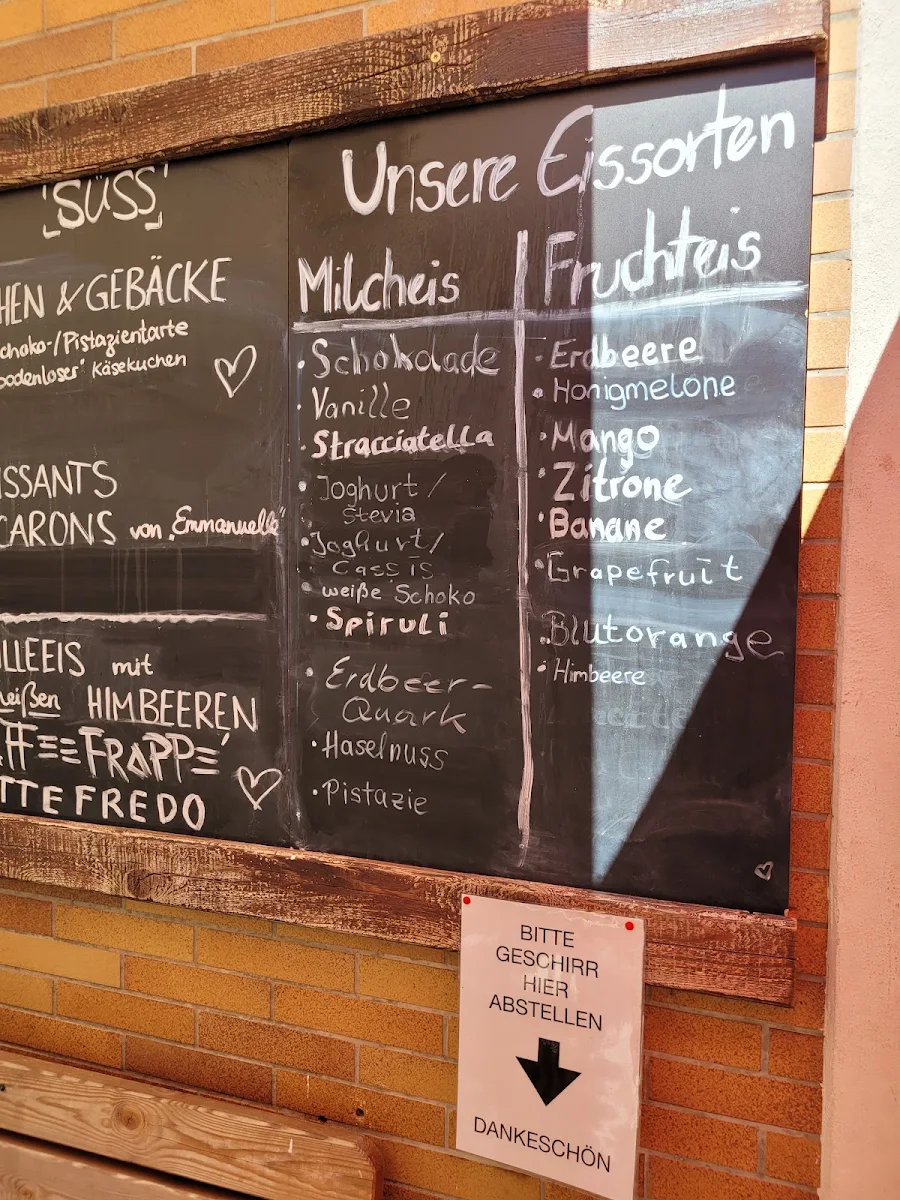 'SÜSS'
HEN & GEBÄCKE
choko-/Pistazientarte
bodenloser" Käsekuchen
ISSANTS
CARONS von „Emmanuelle"
LLEEIS mit
heißen HIMBEEREN
FRAPPÉ
TTE FREDO
Unsere Eissorten
Milcheis
· Schokolade
· Vanille
· Stracciatella
· Joghurt /
Stevia
· Joghurt /
Cassis
· weiße Schoko
· Spiruli
· Erdbeer-
Quark
· Haselnuss
· Pistazie
Fruchteis
· Erdbeere
· Honigmelone
· Mango
· Zitrone
· Banane
· Grapefruit
· Blutorange
· Himbeere
BITTE
GESCHIRR
HIER
ABSTELLEN
DANKESCHÖN